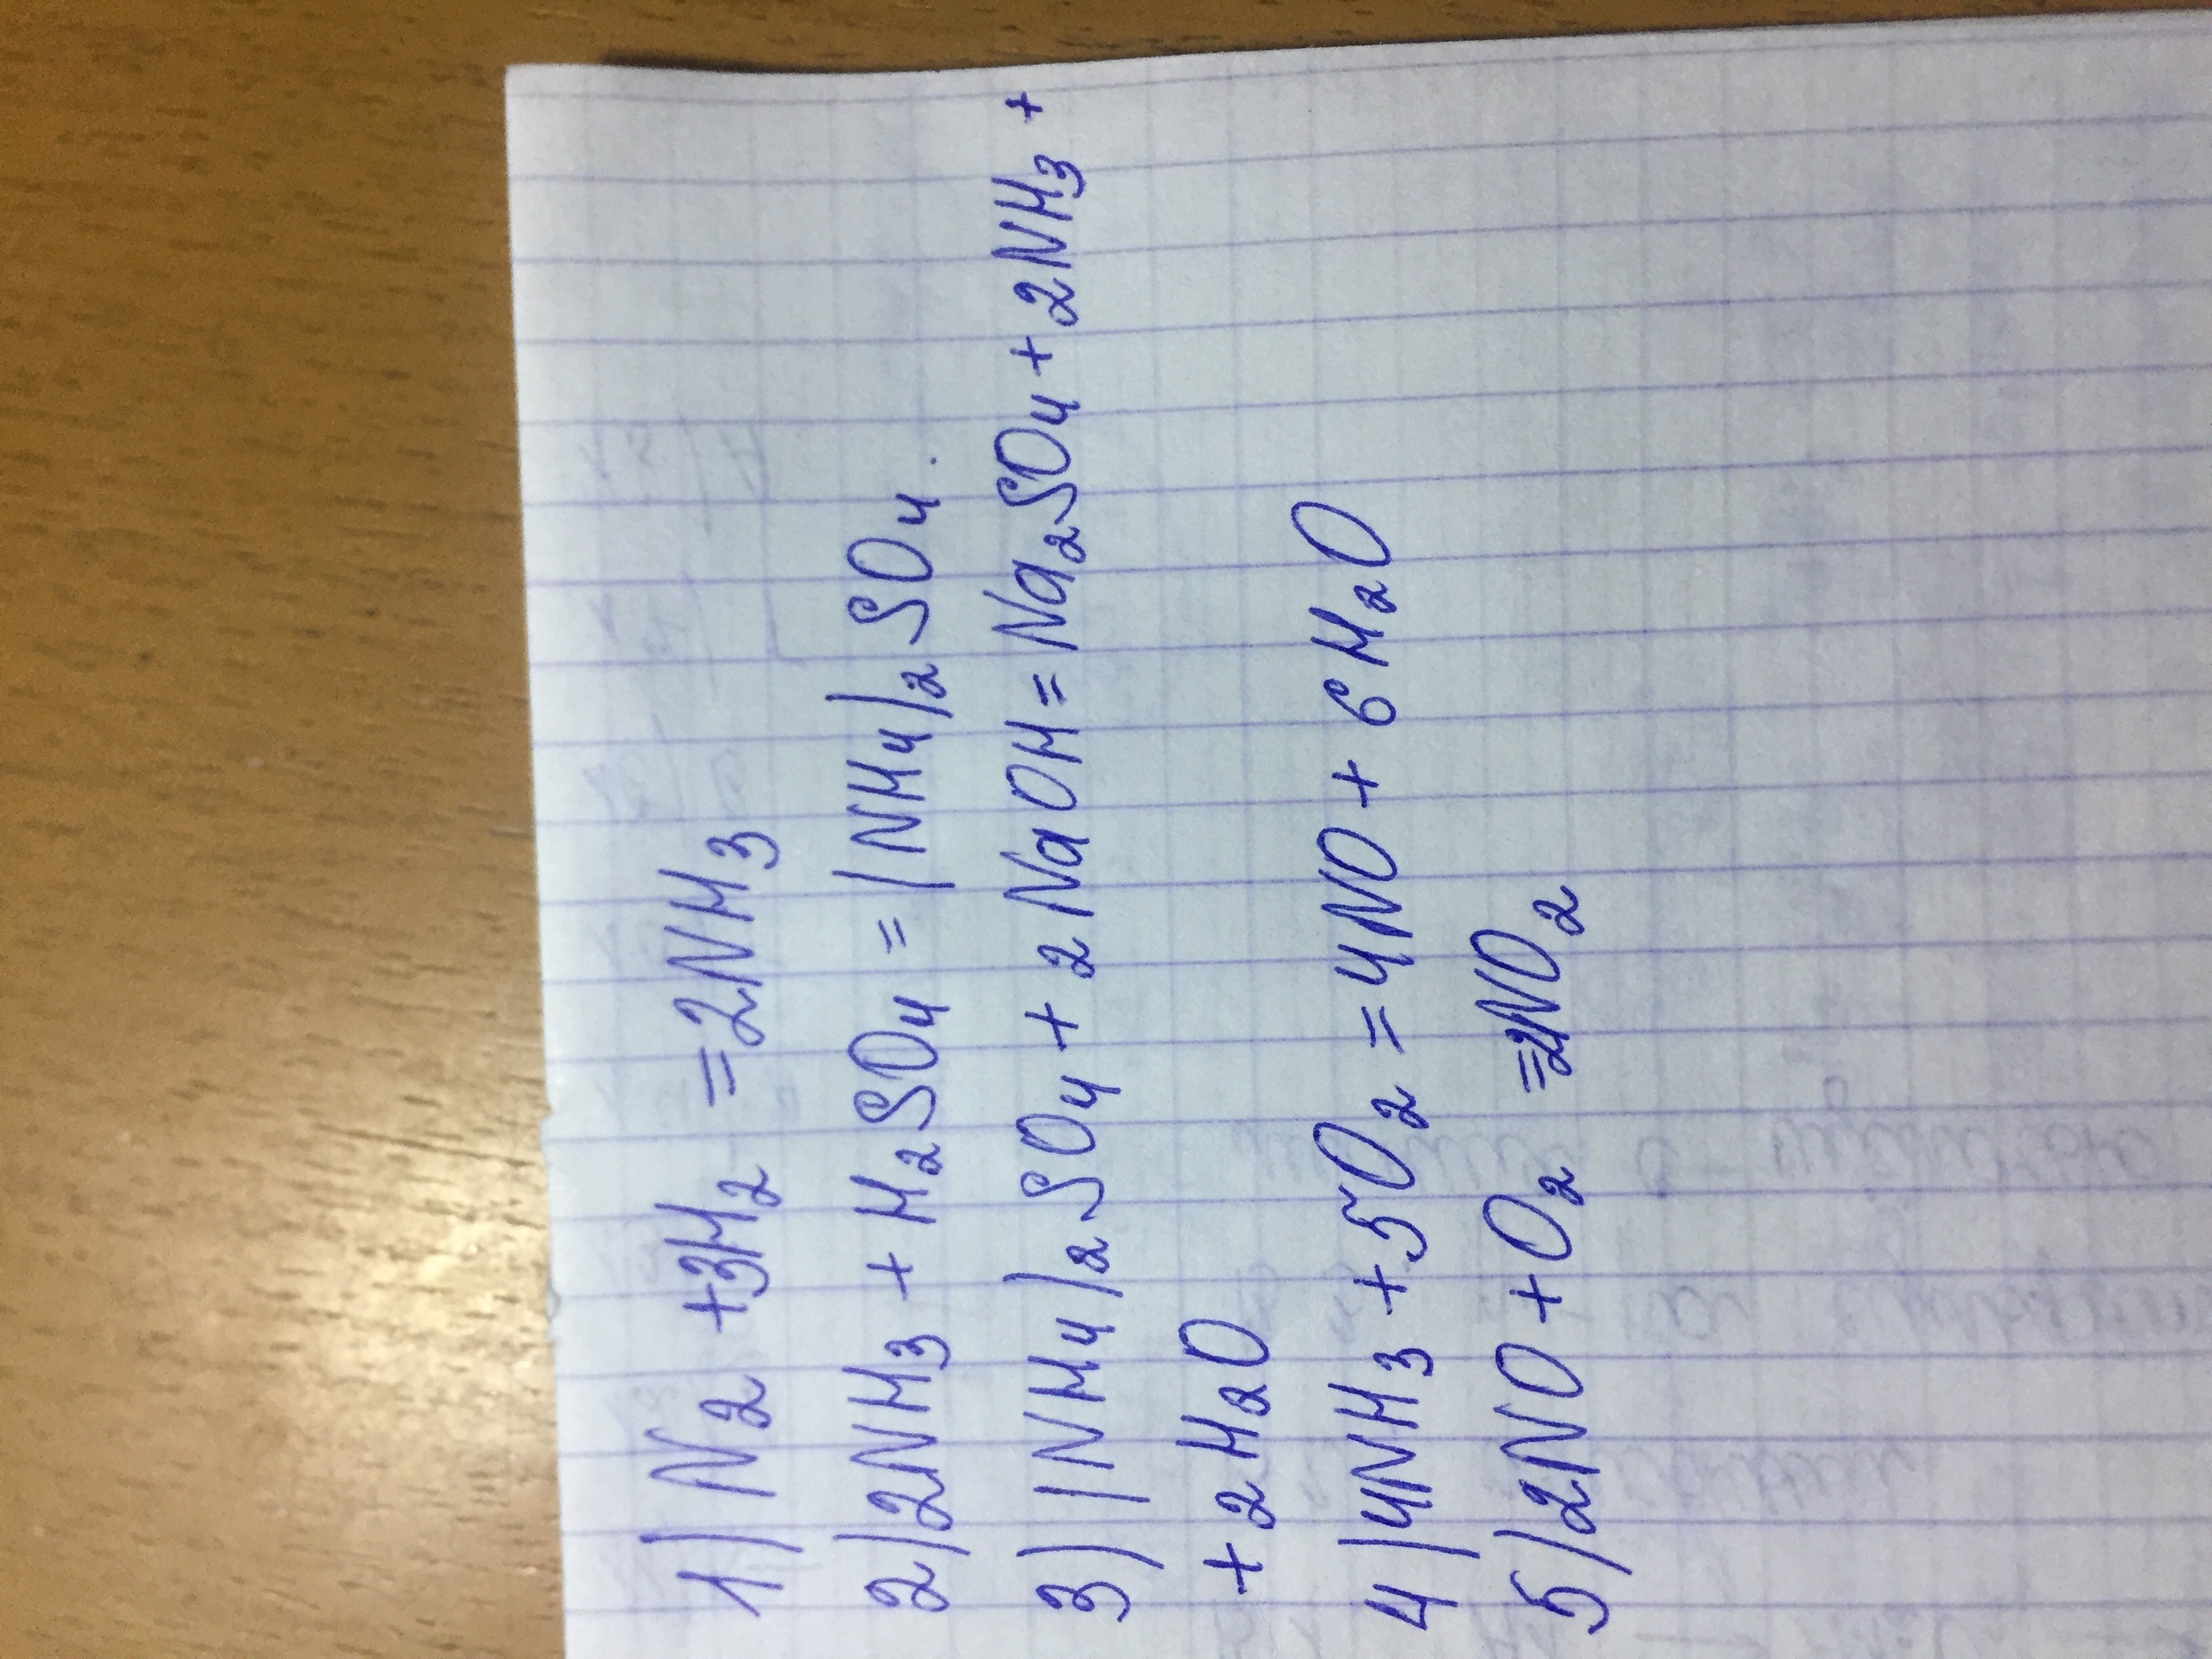 1) N₂ + 3H₂ = 2NH₃
2) 2NH₃ + H₂SO₄ = (NH₄)₂SO₄.
3) (NH₄)₂SO₄ + 2NaOH = Na₂SO₄ + 2NH₃ +
+ 2H₂O
4) 4NH₃ + 5O₂ = 4NO + 6H₂O
5) 2NO + O₂ = 2NO₂